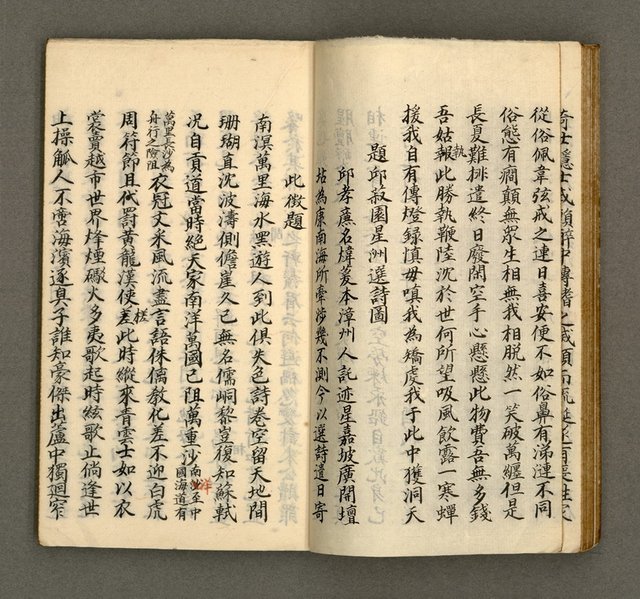 從俗佩韋弦戒之連日喜安便不如俗鼻有涕漣不同
俗態有痼顛無眾生相無我相脫然一笑破萬纏但是
長夏難排遣終日廢閑空手心懸懸此物費吾無多錢
吾姑報此勝執鞭陸沈於世何所望吸風飲露一寒蟬
執
援我自有傳燈録慎毋嗔我為矯虔我于此中獲洞天
題邱叔園星洲選詩圖
邱孝廉名煒萲本漳州人託迹星嘉坡廣開壇
坫為康南海所牽涉幾不測今以選詩遣日寄
此徵題
南溟萬里海水黑遊人到此俱失色詩卷空留天地間
珊瑚直沈波濤側儋崖久已無名儒峒黎豈復知蘇軾
況自貢道當時絕天家南洋萬國已阻萬重沙
南洋至中
國海道有
萬里長沙為
舟行之險阻
衣冠文采風流盡言語侏僑教化差不迎白虎
周符節且代罰黃龍漢使差此時縱來青雲士如以衣
槎
裳賣越市世界烽煙礮火多夷歌起時絃歌止倘逢世
上操觚人不啻海濱逐臭子誰知豪傑出蘆中獨迴窄